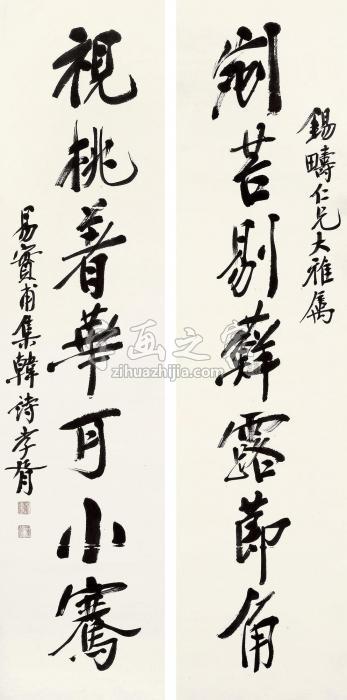 錫疇仁兄大雅屬
剜苔剔蘚露節角
視桃著華可小騫
易實甫集韓詩孝胥
zihuazhijia.com